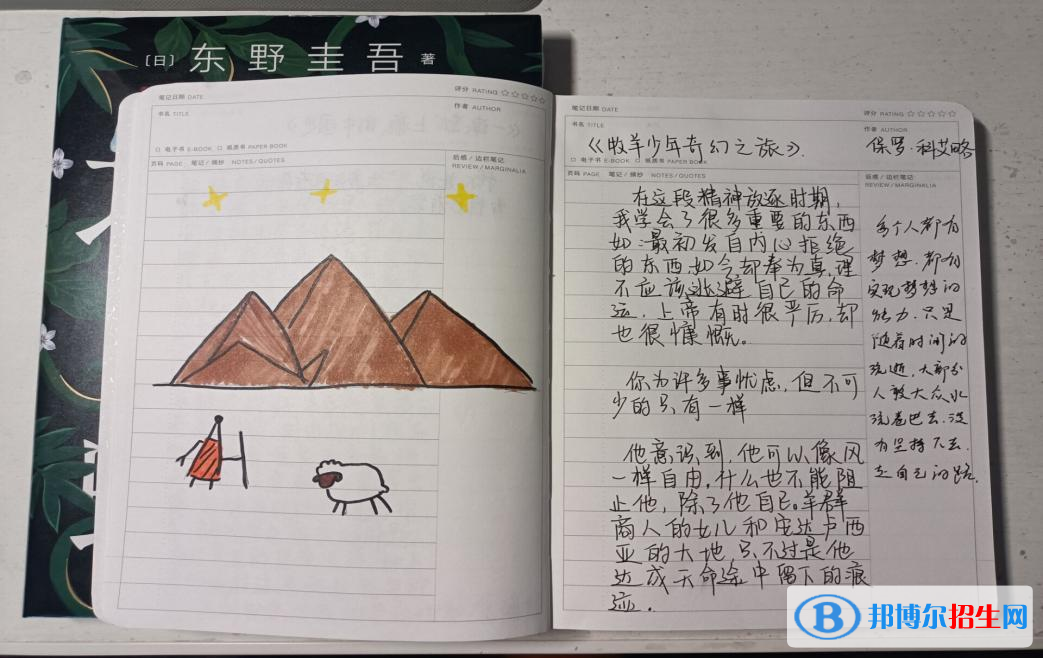 [日] 东野圭吾 著
笔记日期 DATE
评分 RATING ☆☆☆☆☆
书名 TITLE
作者 AUTHOR
□ 电子书 E-BOOK □ 纸质书 PAPER BOOK
页码 PAGE 笔记/摘抄 NOTES/QUOTES
后感/边栏笔记
REVIEW / MARGINALIA
笔记日期 DATE
评分 RATING ☆☆☆☆☆
书名 TITLE
作者 AUTHOR
《牧羊少年奇幻之旅》.
保罗·科艾略
□ 电子书 E-BOOK □ 纸质书 PAPER BOOK
页码 PAGE 笔记/摘抄 NOTES/QUOTES
后感/边栏笔记
REVIEW / MARGINALIA
在这段精神放逐时期,
我学会了很多重要的东西
如:最初发自内心拒绝
的东西,如今,却奉为真理
不应该逃避自己的命
运,上帝有时很严厉,却
也很慷慨。
你为许多事忧虑,但不可
少的只有一样
他意识到,他可以像风
一样自由,什么也不能阻
止他,除了他自己。羊群
商人的女儿和安达卢西
亚的大地,只不过是他
达成天命途中留下的痕
迹.
每个人都有
梦想.都有
实现梦想的
能力.只是
随着时间的
流逝,大部分
人被大众水
流卷巴去.没
有坚持下去.
走自己的路.
邦博尔招生网